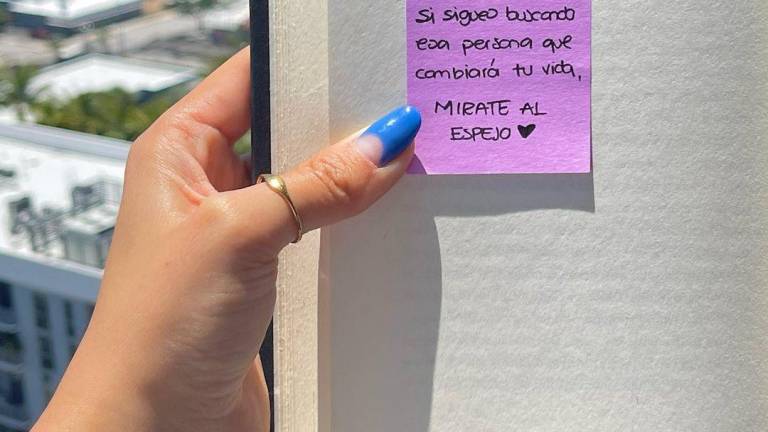 Si sigues buscando
esa persona que
cambiará tu vida,
MIRATE AL
ESPEJO ♥